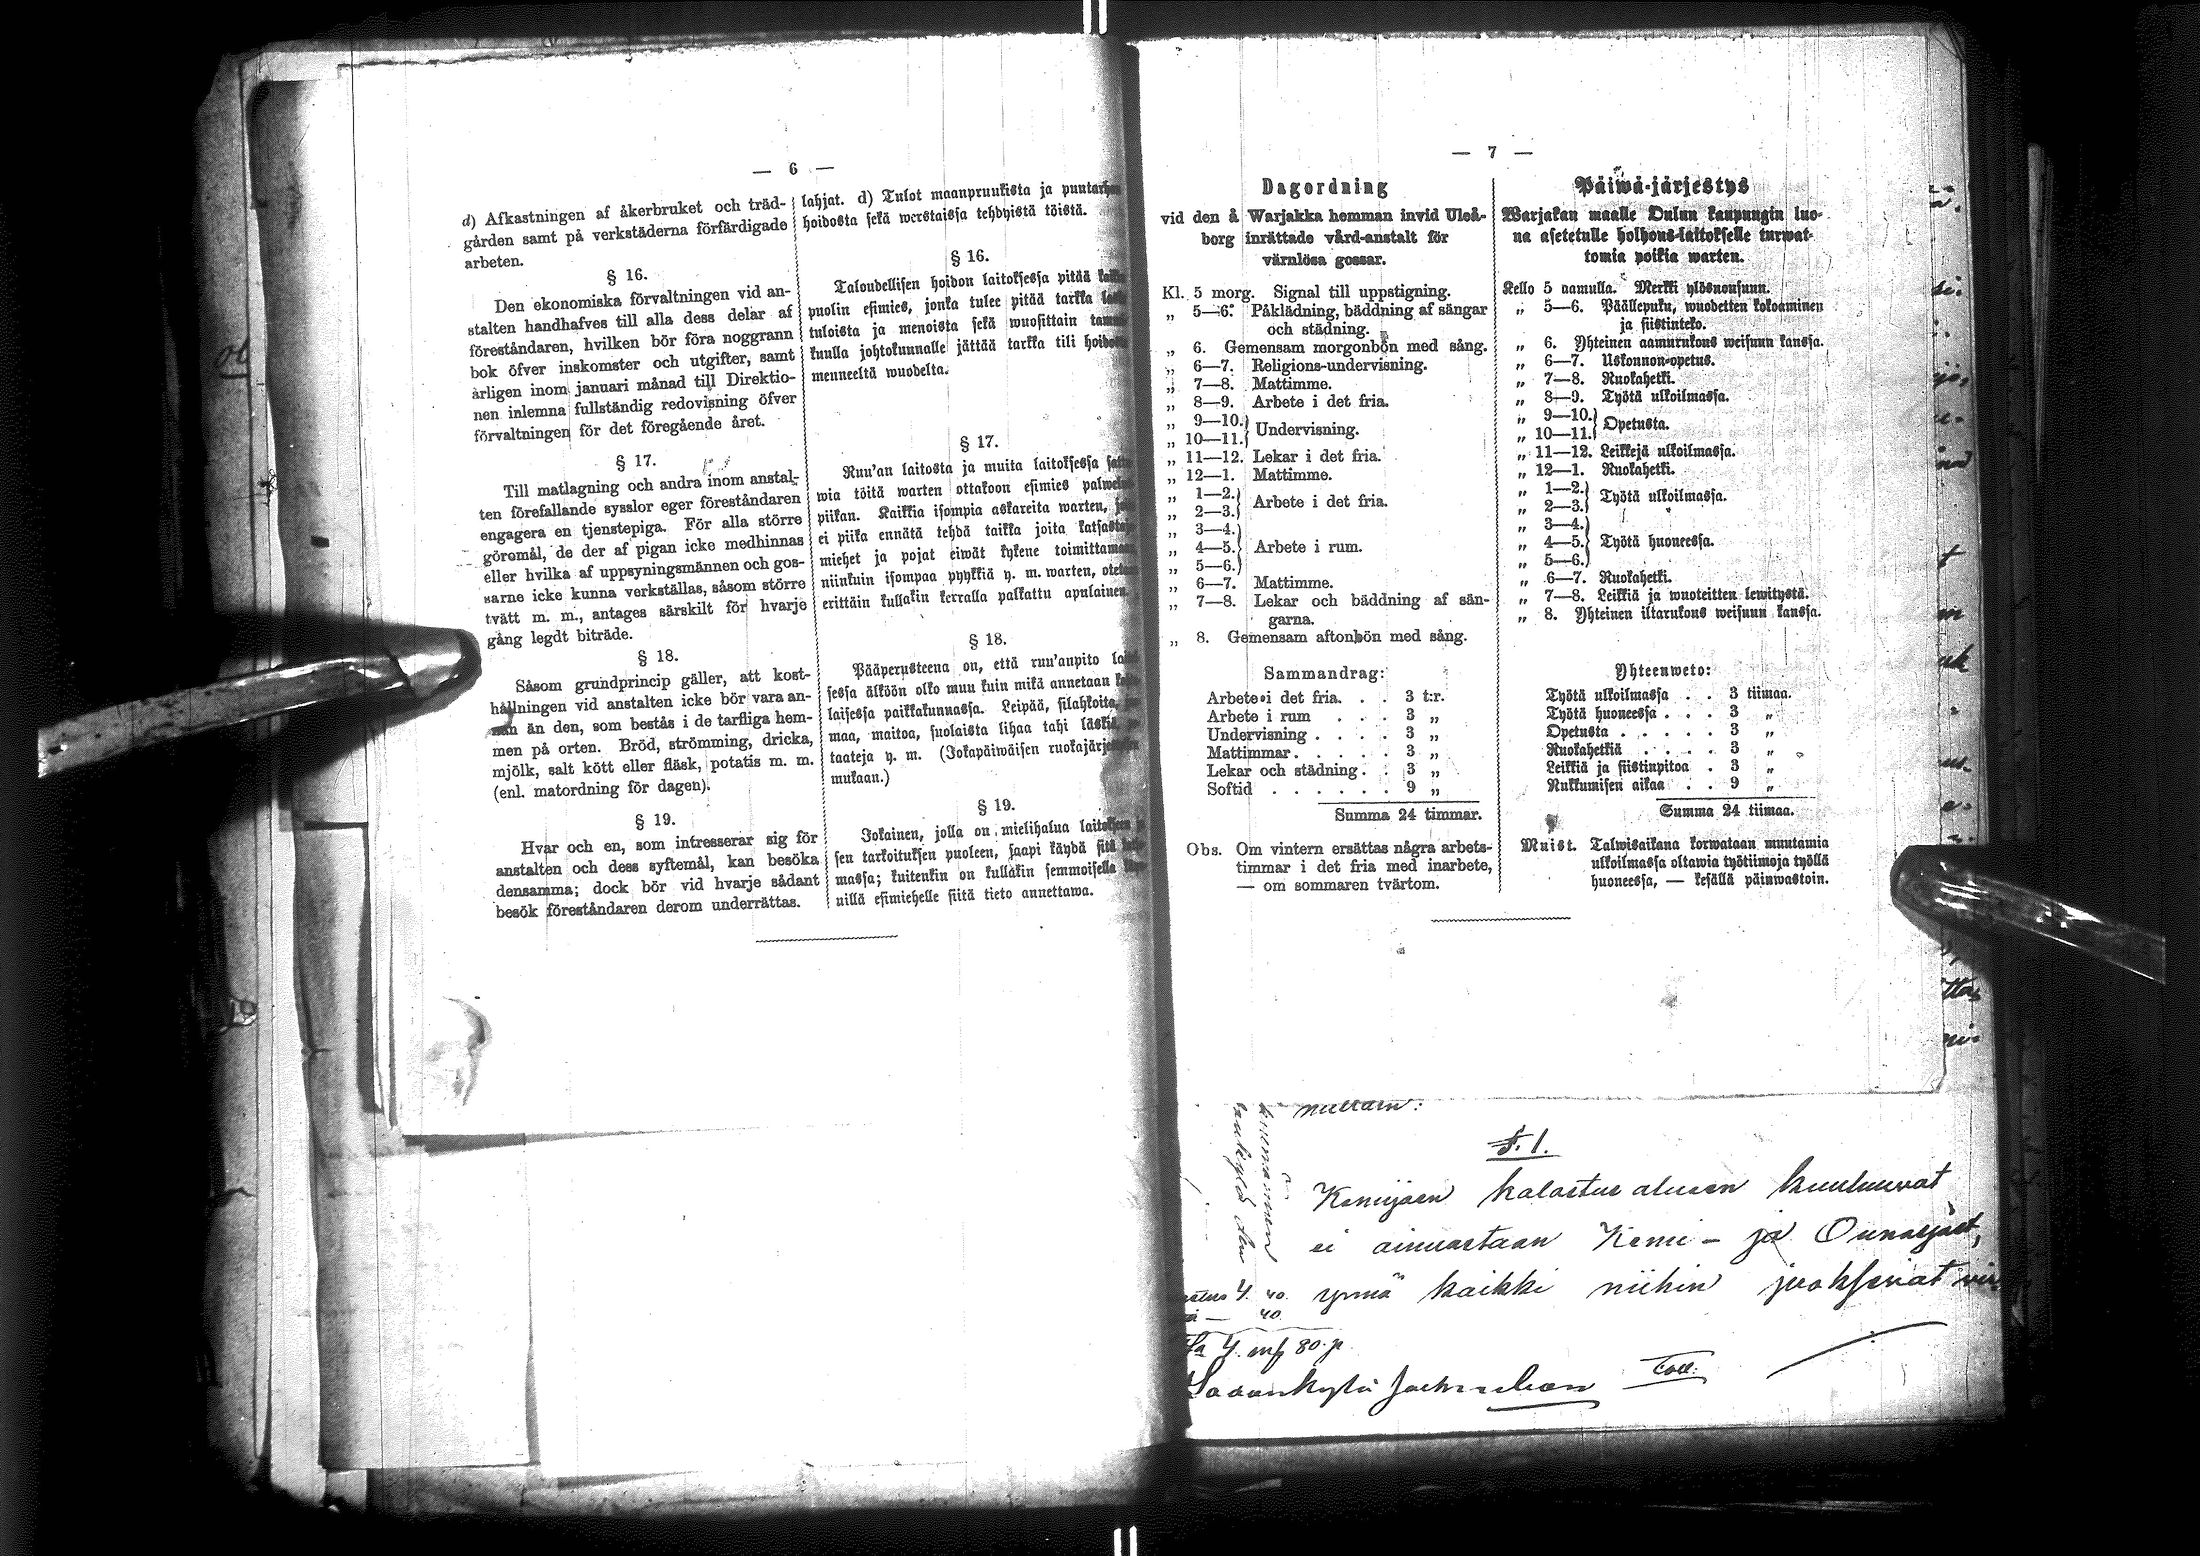 — 6 —
d) Afkastningen af åkerbruket och träd-
gården samt på verkstäderna förfärdigade
arbeten.
§ 16.
Den ekonomiska förvaltningen vid an-
stalten handhafves till alla dess delar af
föreståndaren, hvilken bör föra noggrann
bok öfver inskomster och utgifter, samt
årligen inom januari månad till Direktio-
nen inlemna fullständig redovisning öfver
förvaltningen för det föregående året.
§ 17.
Till matlagning och andra inom anstal-
ten förefallande sysslor eger föreståndaren
engagera en tjenstepiga. För alla större
göromål, de der af pigan icke medhinnas
eller hvilka af uppsyningsmännen och gos-
sarne icke kunna verkställas, såsom större
tvätt m. m., antages särskilt för hvarje
gång legdt biträde.
§ 18.
Såsom grundprincip gäller, att kost-
hållningen vid anstalten icke bör vara an-
nan än den, som bestås i de tarfliga hem-
men på orten. Bröd, strömming, dricka,
mjölk, salt kött eller fläsk, potatis m. m.
(enl. matordning för dagen).
§ 19.
Hvar och en, som intresserar sig för
anstalten och dess syftemål, kan besöka
densamma; dock bör vid hvarje sådant
besök föreståndaren derom underrättas.
lahjat. d) Tulot maanpruukista ja
hoidosta sekä werstaissa tehdyistä töistä.
§ 16.
Taloudellisen hoidon laitoksessa pitää
puolin esimies, jonka tulee pitää tarkka
tuloista ja menoista sekä wuosittain
kuulla johtokunnalle jättää tarkka tili
menneeltä wuodelta.
§ 17.
Ruu'an laitosta ja muita laitoksessa
wia töitä warten ottakoon esimies
piikan. Kaikkia isompia askareita warten,
ei piika ennätä tehdä taikka joita
miehet ja pojat eiwät kykene
niinkuin isompaa pyykkiä y. m. warten,
erittäin kullakin kerralla palkattu apulainen.
§ 18.
Pääperusteena on, että ruu'anpito
sessa älköön olko muu kuin mikä annetaan
laisessa paikkakunnassa. Leipää, silahkoita,
maa, maitoa, suolaista lihaa tahi läskiä,
taateja y. m. (Jokapäiwäisen
mukaan.)
§ 19.
Jokainen, jolla on mielihalua
sen tarkoituksen puoleen, saapi käydä sitä
massa; kuitenkin on kullakin semmoisella
nillä esimiehelle siitä tieto annettawa.
— 7 —
Dagordning
vid den å Warjakka hemman invid Uleå-
borg inrättade vård-anstalt för
värnlösa gossar.
Kl. 5 morg. Signal till uppstigning.
„ 5—6. Påklädning, bäddning af sängar
och städning.
„ 6. Gemensam morgonbön med sång.
„ 6—7. Religions-undervisning.
„ 7—8. Mattimme.
„ 8—9. Arbete i det fria.
„ 9—10.
„ 10—11. Undervisning.
„ 11—12. Lekar i det fria.
„ 12—1. Mattimme.
„ 1—2.
„ 2—3. Arbete i det fria.
„ 3—4.
„ 4—5. Arbete i rum.
„ 5—6.
„ 6—7. Mattimme.
„ 7—8. Lekar och bäddning af sän-
garna.
„ 8. Gemensam aftonbön med sång.
Sammandrag:
Arbete i det fria. . . 3 t:r.
Arbete i rum . . . 3 „
Undervisning . . . . 3 „
Mattimmar . . . . 3 „
Lekar och städning . . 3 „
Softid . . . . . . 9 „
Summa 24 timmar.
Obs. Om vintern ersättas några arbets-
timmar i det fria med inarbete,
— om sommaren tvärtom.
Päiwä-järjestys
Warjakan maalle Oulun kaupungin luo-
na asetetulle holhous-laitokselle turwat-
tomia poikia warten.
Kello 5 aamulla. Merkki ylösnousuun.
„ 5—6. Päällepuku, wuodetten kokoaminen
ja siistinteko.
„ 6. Yhteinen aamurukous weisuun kanssa.
„ 6—7. Uskonnon-opetus.
„ 7—8. Ruokahetki.
„ 8—9. Työtä ulkoilmassa.
„ 9—10.
„ 10—11. Opetusta.
„ 11—12. Leikkejä ulkoilmassa.
„ 12—1. Ruokahetki.
„ 1—2.
„ 2—3. Työtä ulkoilmassa.
„ 3—4.
„ 4—5. Työtä huoneessa.
„ 5—6.
„ 6—7. Ruokahetki.
„ 7—8. Leikkiä ja wuoteitten lewitystä.
„ 8. Yhteinen iltarukous weisuun kanssa.
Yhteenweto:
Työtä ulkoilmassa . . 3 tiimaa.
Työtä huoneessa . . . 3 „
Opetusta . . . . . 3 „
Ruokahetkiä . . . . 3 „
Leikkiä ja siistinpitoa . 3 „
Nukkumisen aikaa . . 9 „
Summa 24 tiimaa.
Muist. Talwisaikana korwataan muutamia
ulkoilmassa oltawia työtiimoja työllä
huoneessa, — kesällä päinwastoin.
§. 1.
Kemijoen kalastus alueen kuuluuvat
ei ainuastaan Kemi- ja Ounasjoet,
ynnä kaikki niihin juoksevat
4. 40.
40
4. mf 80. p.